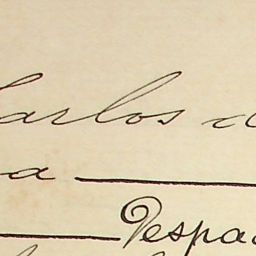 Carlos d
a
Despa